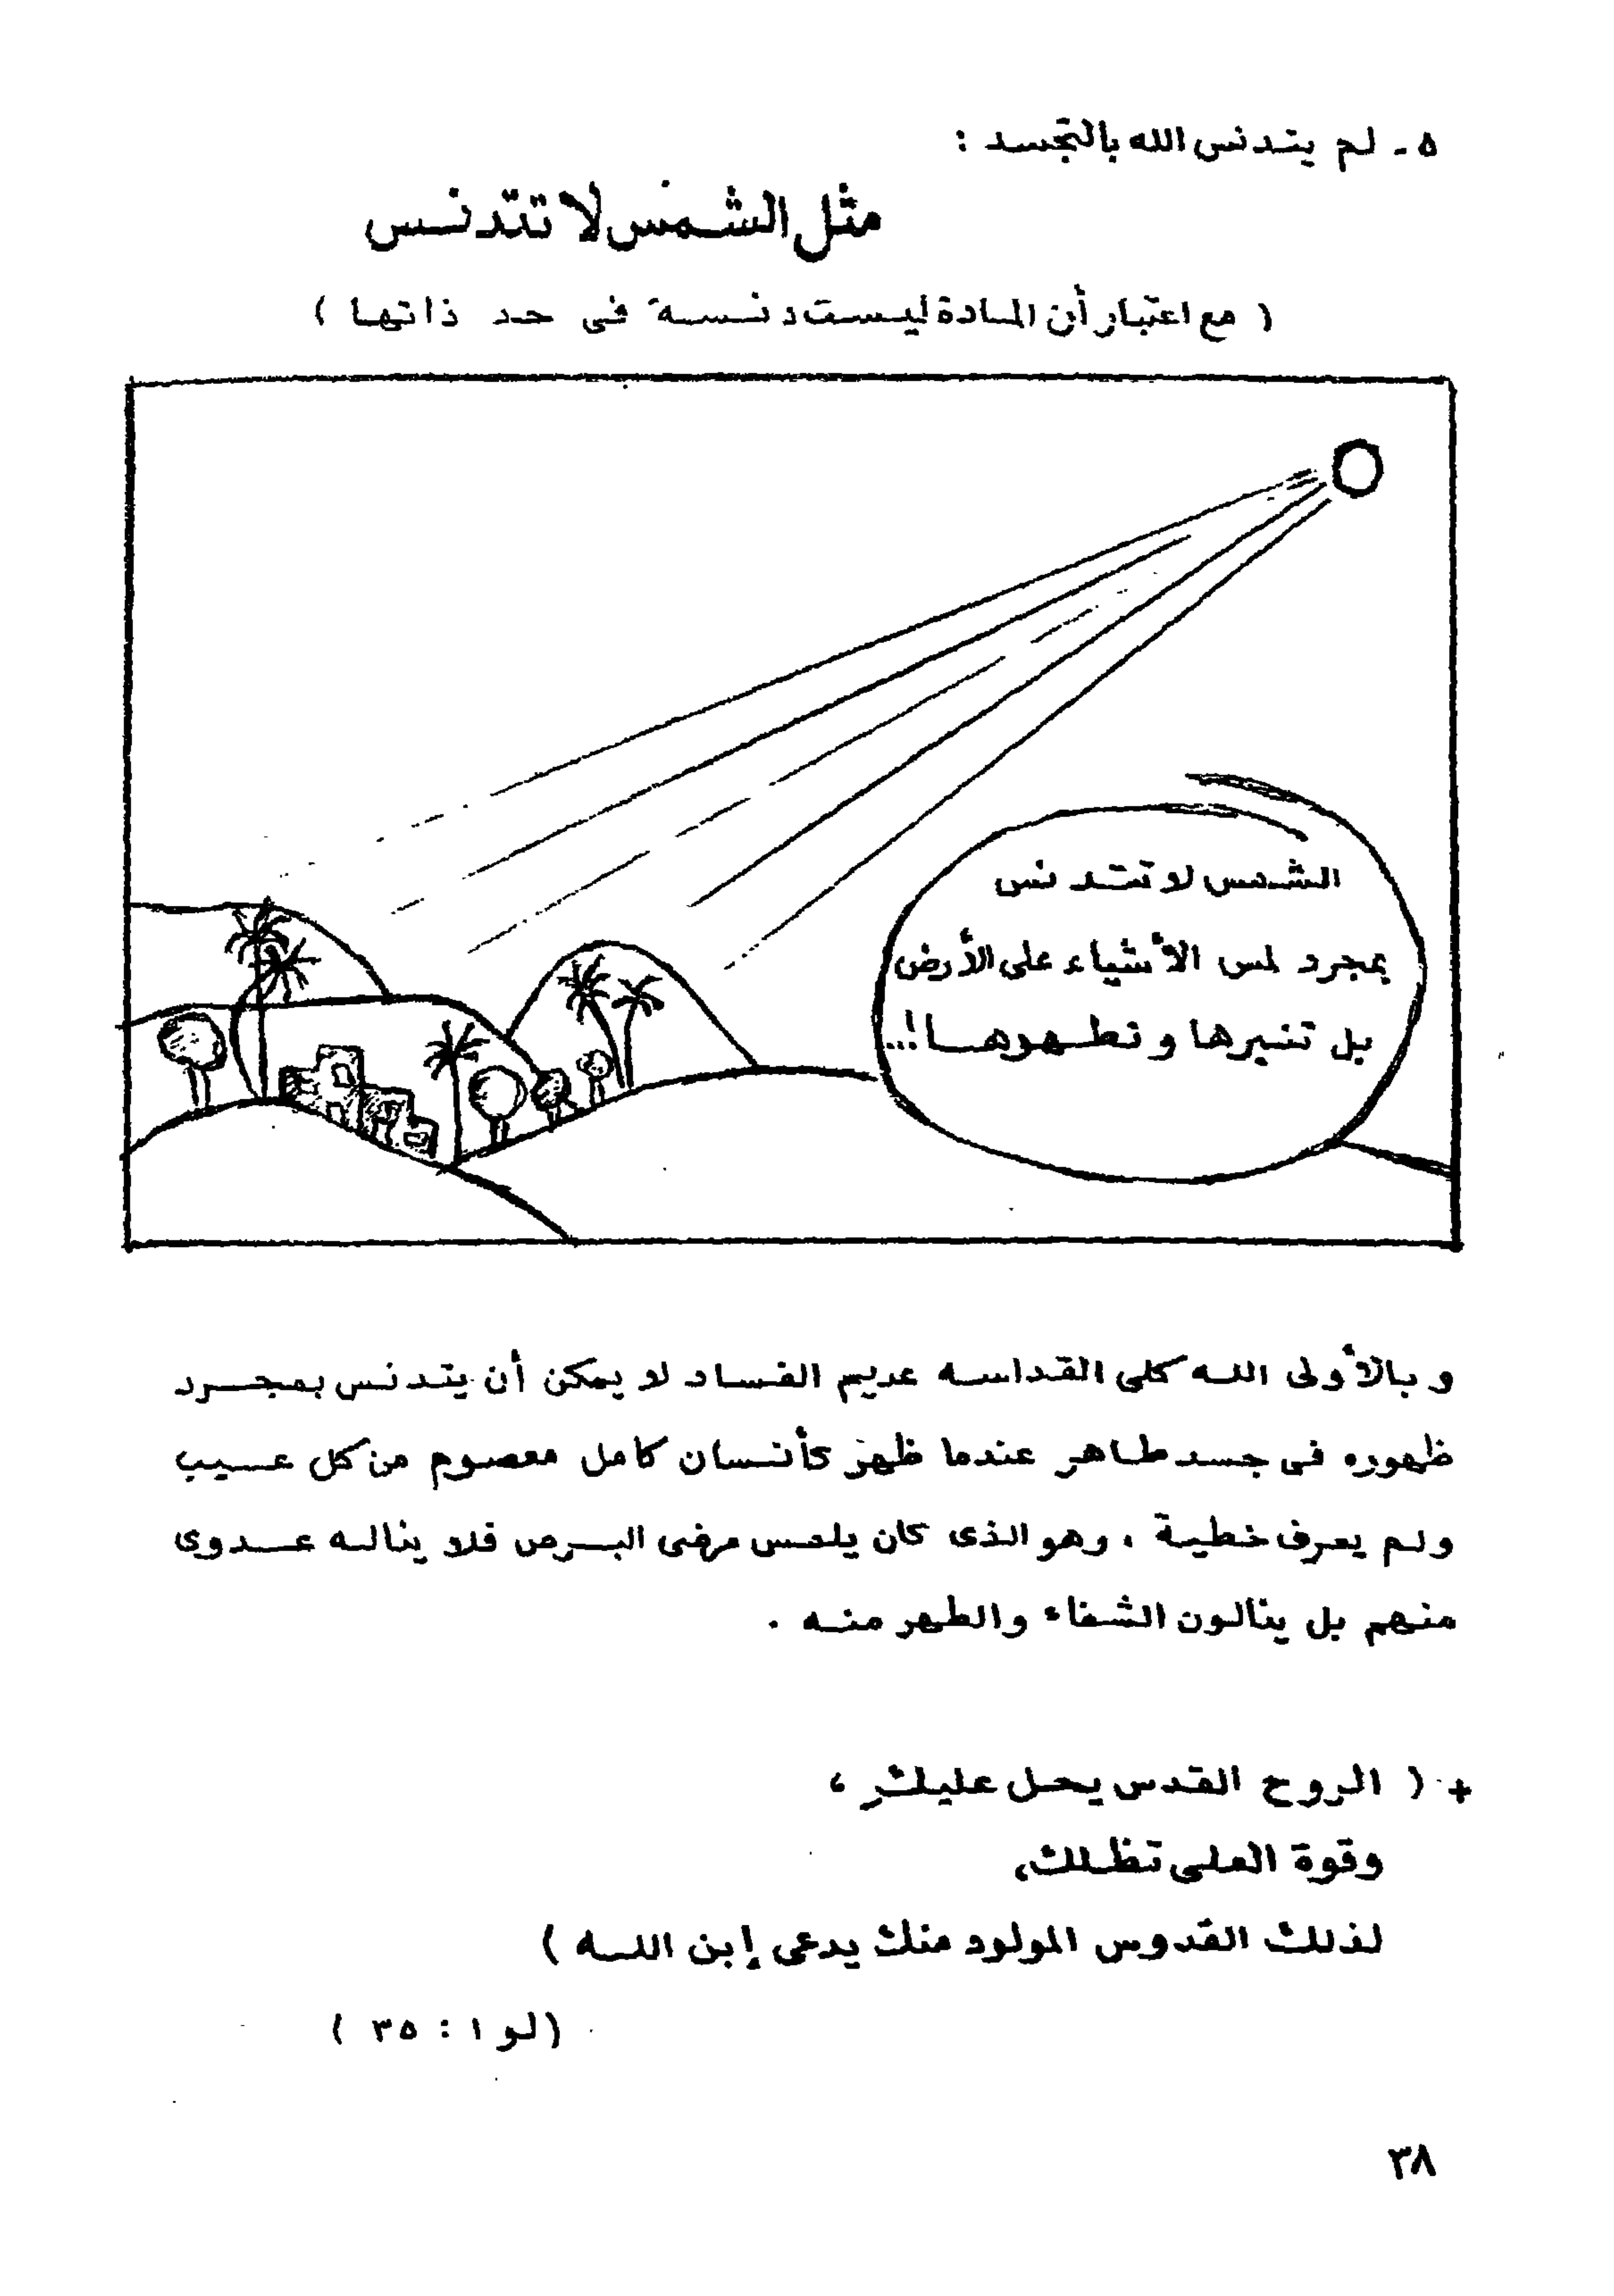 ٥ - لم يتدنس الله بالتجسد :
مثل الشمس لا تتدنس
( مع اعتبار أن المادة ليست دنسة فى حد ذاتها )
الشمس لا تتدنس
بمجرد لمس الأشياء على الأرض
بل تنيرها وتطهرها !...
وبالأولى الله كلى القداسه عديم الفساد لا يمكن أن يتدنس بمجرد
ظهوره فى جسد طاهر عندما ظهر كأنسان كامل معصوم من كل عيب
ولم يعرف خطية ، وهو الذى كان يلمس مرضى البرص فلا يناله عدوى
منهم بل ينالون الشفاء والطهر منه .
+ ( الروح القدس يحل عليك ،
وقوة العلى تظلك ،
لذلك القدوس المولود منك يدعى إبن الله )
( لو ١ : ٣٥ )
٣٨